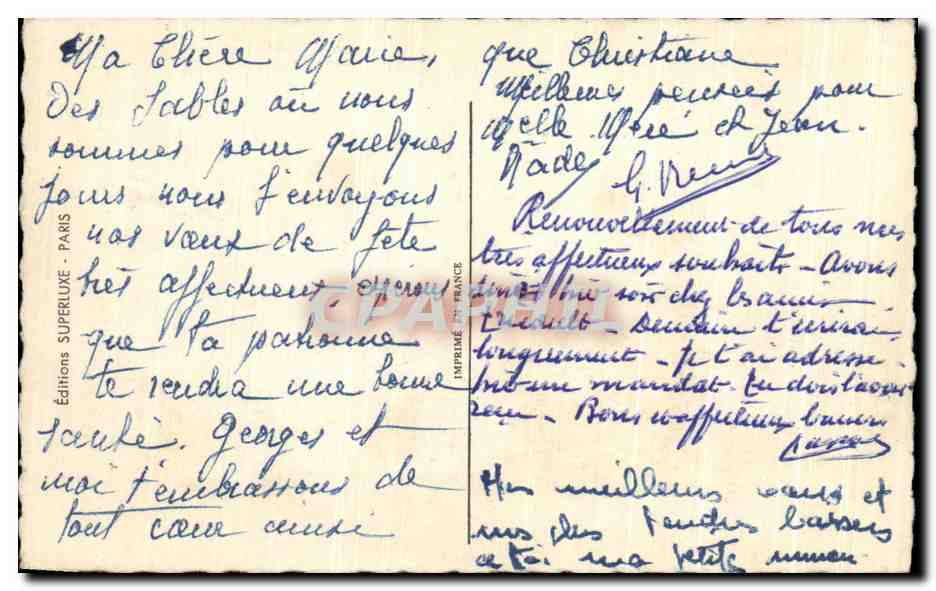 Ma Chère Marie,
Des Sables où nous
sommes pour quelques
jours nous t'envoyons
nos vœux de fête
très affectueux, espérons
que ta patronne
te rendra une bonne
santé. Georges et
moi t'embrassons de
tout cœur ainsi
que Christiane
Meilleures pensées pour
Melle Méré et Jean.
G.
Renouvellement de tous mes
très affectueux souhaits - Avons
dîné hier soir chez
Demain t'écrirai
longuement - Je t'ai adressé
un mandat - tu dois l'avoir
reçu - Bons et affectueux baisers
Mes meilleurs vœux et
mes plus tendres baisers
à toi ma petite maman
Éditions SUPERLUXE - PARIS
IMPRIMÉ EN FRANCE
CPARAMA